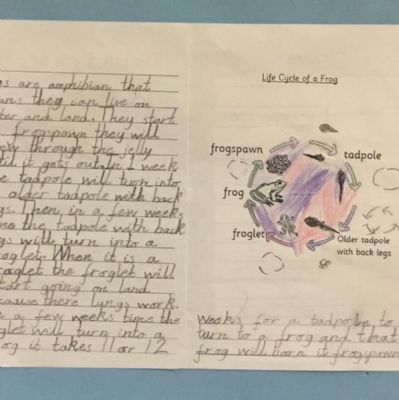 s are amphibian that
ans they can live on
ter and land. They start
frogspawn they will
ew through the jelly
til it gets out. in 1 week
e tadpole will turn into
older tadpole with back
gs. Then in a few weeks
me the tadpole with back
gs will turn into a
roglet. When it is a
roglet the froglet will
tart going on land
ecause there lungs work.
n a few weeks time the
oglet will turn into a
rog it takes 11 or 12
Life Cycle of a Frog
frogspawn
tadpole
frog
froglet
Older tadpole
with back legs
weeks for a tadpole to
turn to a frog and that
frog will born it frogspawn